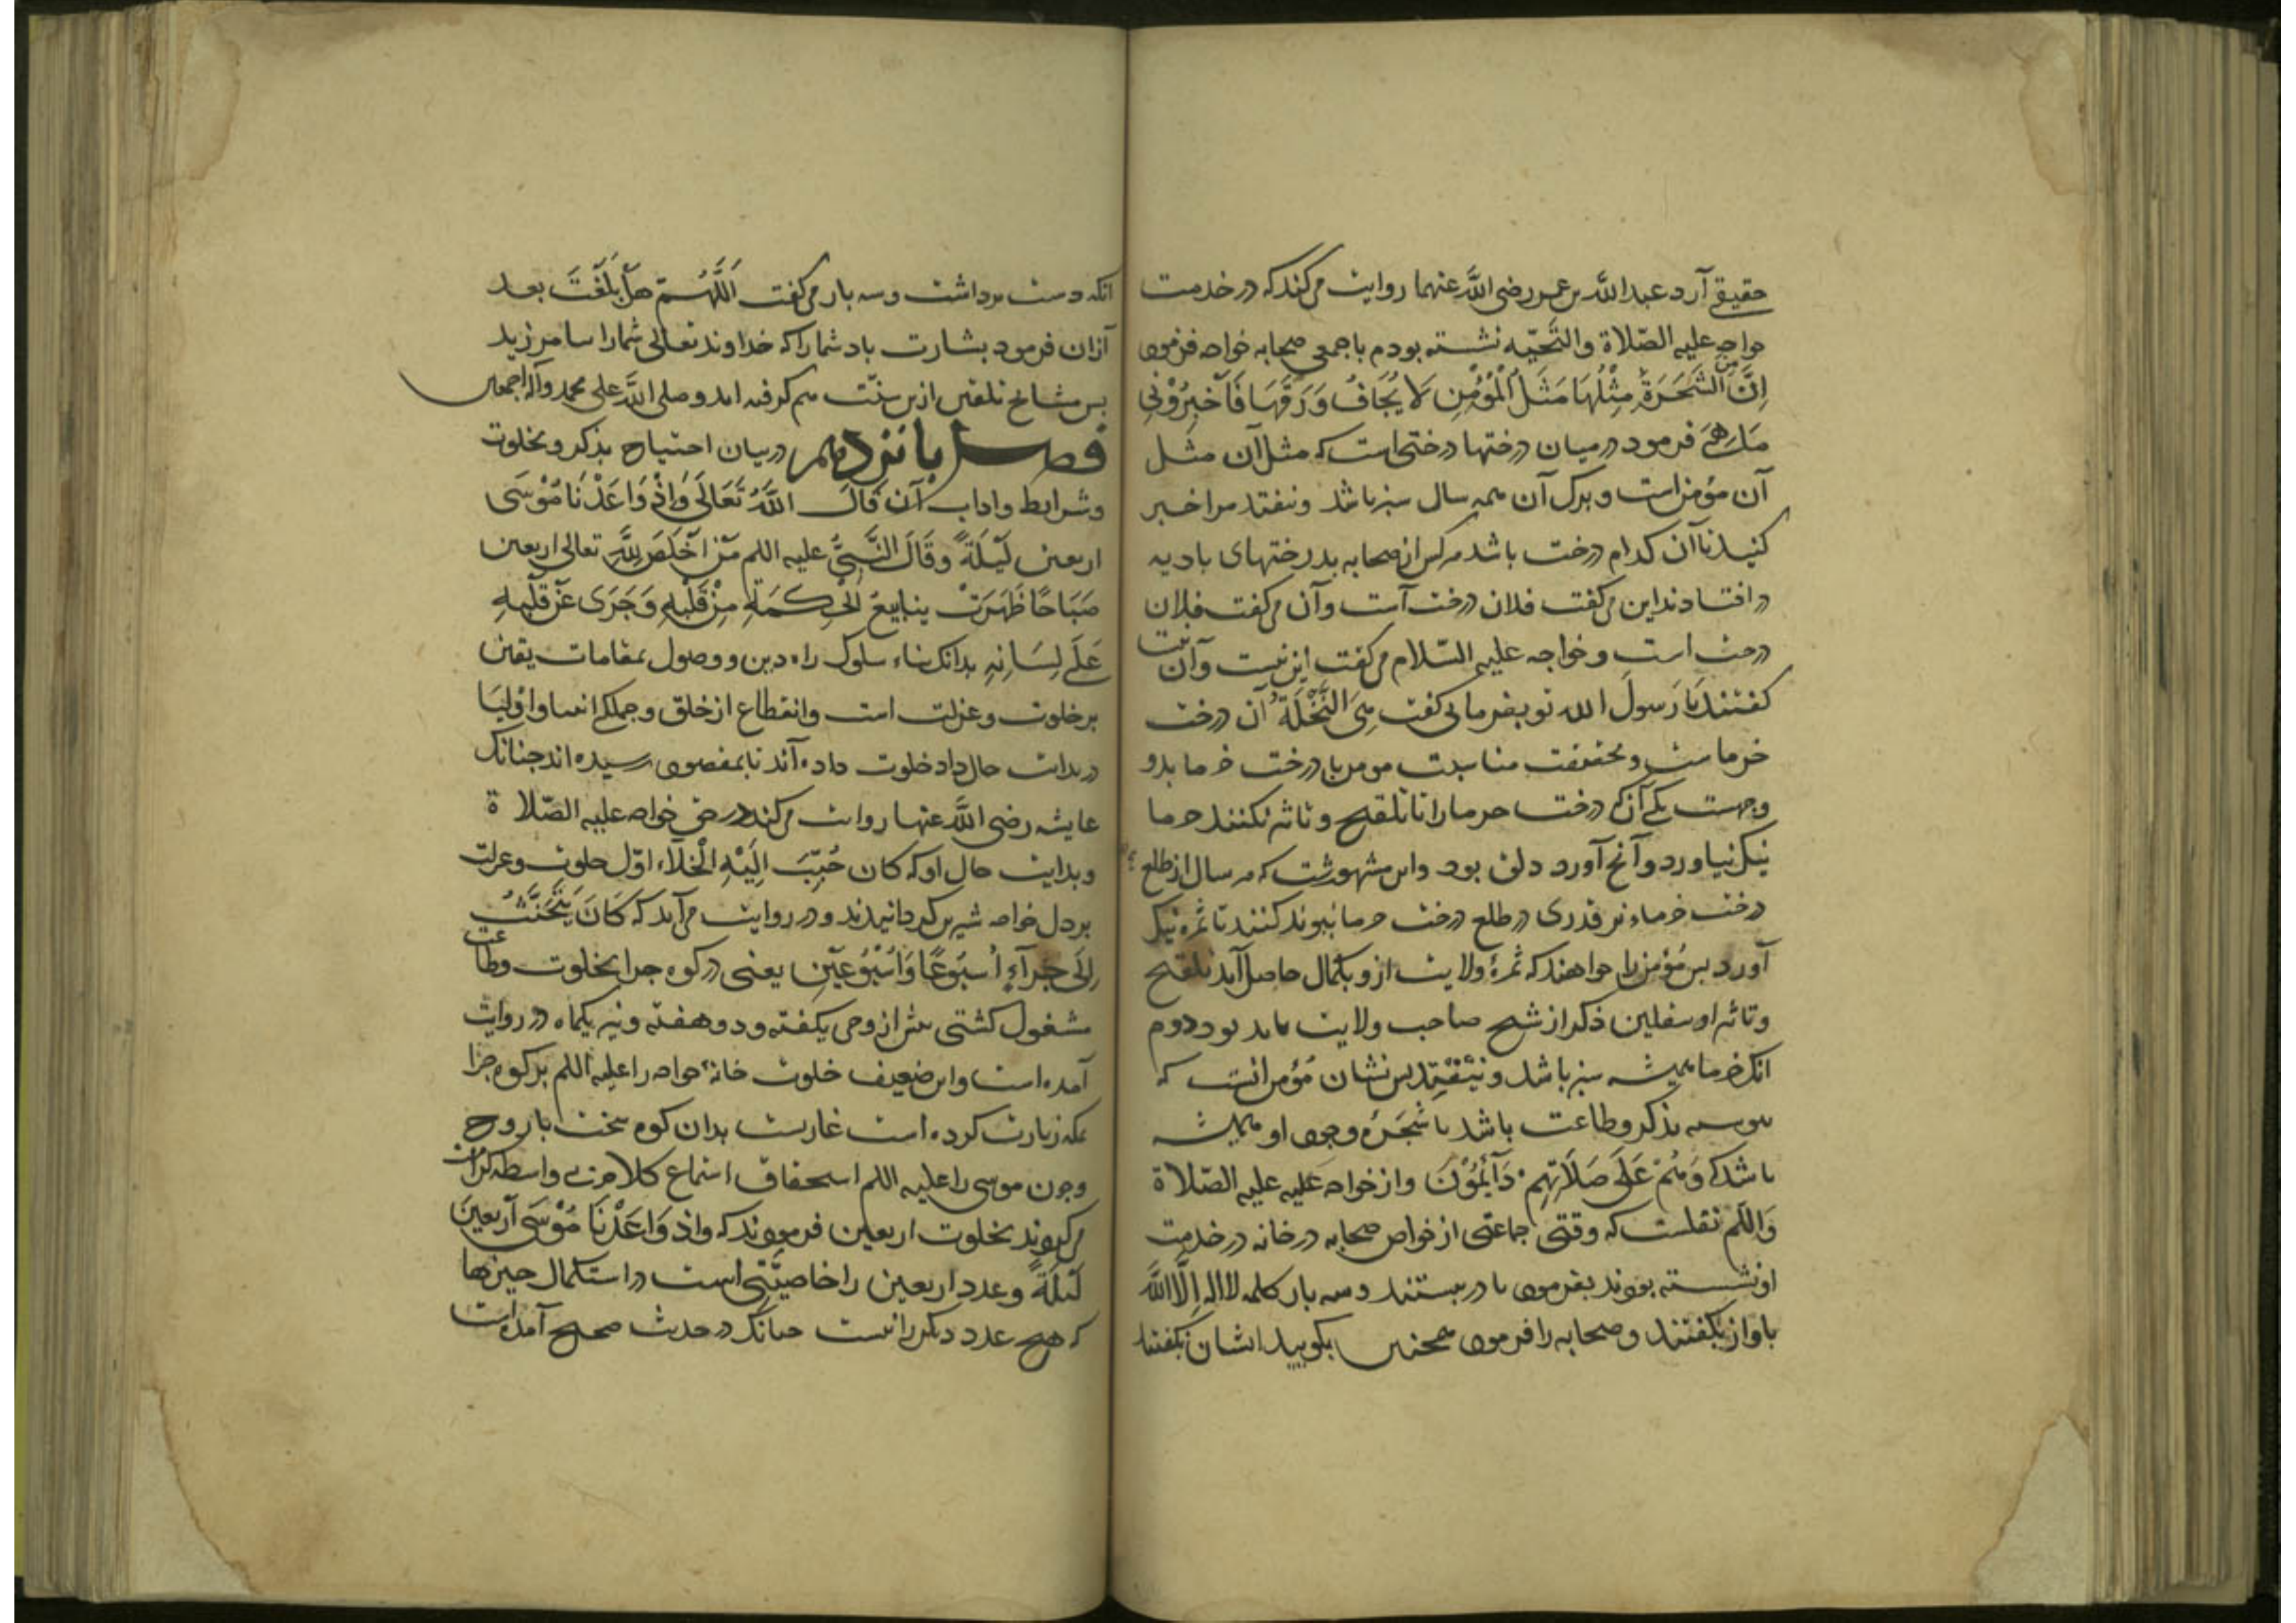 حقیقی آرد عبد الله بن عمر رضی الله عنهما روایت می‌کند که در خدمت
خواجه علیه الصّلاة والتَّحیّه نشسته بودم با جمعی صحابه خواجه فرمود
اِنَّ مِنَ الشَّجَرَةِ مِثْلُهَا مَثَلُ الْمُؤْمِنِ لَا یُجَافُ وَرَقُهَا فَاَخْبِرُوْنِی
مَا هِیَ فرمود در میان درختها درختی است که مثل آن مثل
آن مؤمن است و برک آن همه سال سبز باشد و نیفتد مرا خبر
کنید تا آن کدام درخت باشد هر کس از صحابه بدرختهای بادیه
در افتادند این می‌کفت فلان درخت است و آن می‌کفت فلان
درخت است و خواجه علیه السّلام می‌کفت این نیست و آن نیست
کفتند یَا رَسولَ الله تو بفرمای کفت هِیَ النَّخْلَةُ آن درخت
خرماست و بحقیقت مناسبت مومن با درخت خرما بدو
وجهست یکی آنکه درخت خرما را تا تلقیح و تاثیر نکنند خرما
نیک نیاورد و آنچ آورد دلق بود واین مشهورست که هر سال از طلع
درخت خرماء نر قدری در طلع درخت خرما پیوند کنند تا ثمره نیک
آورد بس مُؤمن را خواهند که ثمرهٔ ولایت ازو بکمال حاصل آید تلقیح
وتاثیر او بتلقین ذکر از شیخ صاحب ولایت باید بود دوم
انک خرما همیشه سبز باشد و نیفتد بس نشان مُؤمن انست که
بیوسته بذکر وطاعت باشد با شجرهٔ وجود او همیشه
باشد که وَهُمْ عَلَی صَلَاتِهِمْ دَآئِمُوْنَ و از خواجه علیه علیه الصّلاة
وَالسّلم نقلست که وقتی جماعتی از خواص صحابه در خانه در خدمت
او نشسته بودند بفرمود تا در ببستند و سه بار کلمه لا اله اِلَّا اللَّه
باواز بکفتند و صحابه را فرمود همچنین بکویید ایشان بکفتند
انکه دست برداشت وسه بار می‌کفت اَللَّهُمَّ هَلْ بَلَّغْتَ بعد
ازان فرمود بشارت باد شما را که خداوند تعالی شما را بیامرزید
بس مشایخ تلقین ازین سنّت هم کرفته اند و صلی الله علی محمد وآله اجمعین
فصل پانزدهم در بیان احتیاج بذکر و بخلوت
وشرایط واداب آن قَالَ اللَّهُ تَعَالَی وَاِذْ وَاعَدْنَا مُوْسَی
اربعین لَیْلَةً وقَالَ النَّبِیُّ علیه السلم مَنْ اَخْلَصَ لِلَّهِ تعالی اربعین
صَبَاحًا ظَهَرَتْ ینابیعُ الْحِکْمَةِ مِنْ قَلْبِهِ وَجَرَی عَنْ قَلْبِهِ
عَلَی لِسَانِهِ بدانک بناء سلوک راه دین و وصول بمقامات یقین
بر خلوت و عزلت است وانقطاع از خلق و جملکی انبیا و اَوْلیَا
در بدایت حال داد خلوت داده آند تا بمقصود رسیده اند جنانک
عایشه رضی الله عنها روایت می‌کند در حق خواجه علیه الصّلاة
و بدایت حال او که کان حُبِّبَ اِلَیْهِ الْخَلَآء اوّل خلوت وعزلت
بر دل خواجه شیرین کردانیدند و در روایت می‌آید که کَانَ یَتَحَنَّثُ
اِلَی حِرَآءٍ اُسْبُوعًا وَاُسْبُوْعَیْنِ یعنی در کوه حرا بخلوت وطاعت
مشغول کشتی بیش از وحی یکهفته و دو هفته و نیز یکماه در روایت
آمده است و این ضعیف خلوت خانهٔ خواجه را علیه السلم بر کوه حرا
بمکه زیارت کرده است غاریست بدان کوه سخت با روح
وجون موسی را علیه السلم استحقاق استماع کلام بی واسطه کرامت
می‌کردند بخلوت اربعین فرمودند که واذ وَاعَدْنَا مُوْسَی اَرْبَعینَ
لَیْلَةً وعدد اربعین را خاصیّتی است در استکمال جیزها
که هیچ عدد دیکر را نیست جنانک در حدیث صحیح آمده است